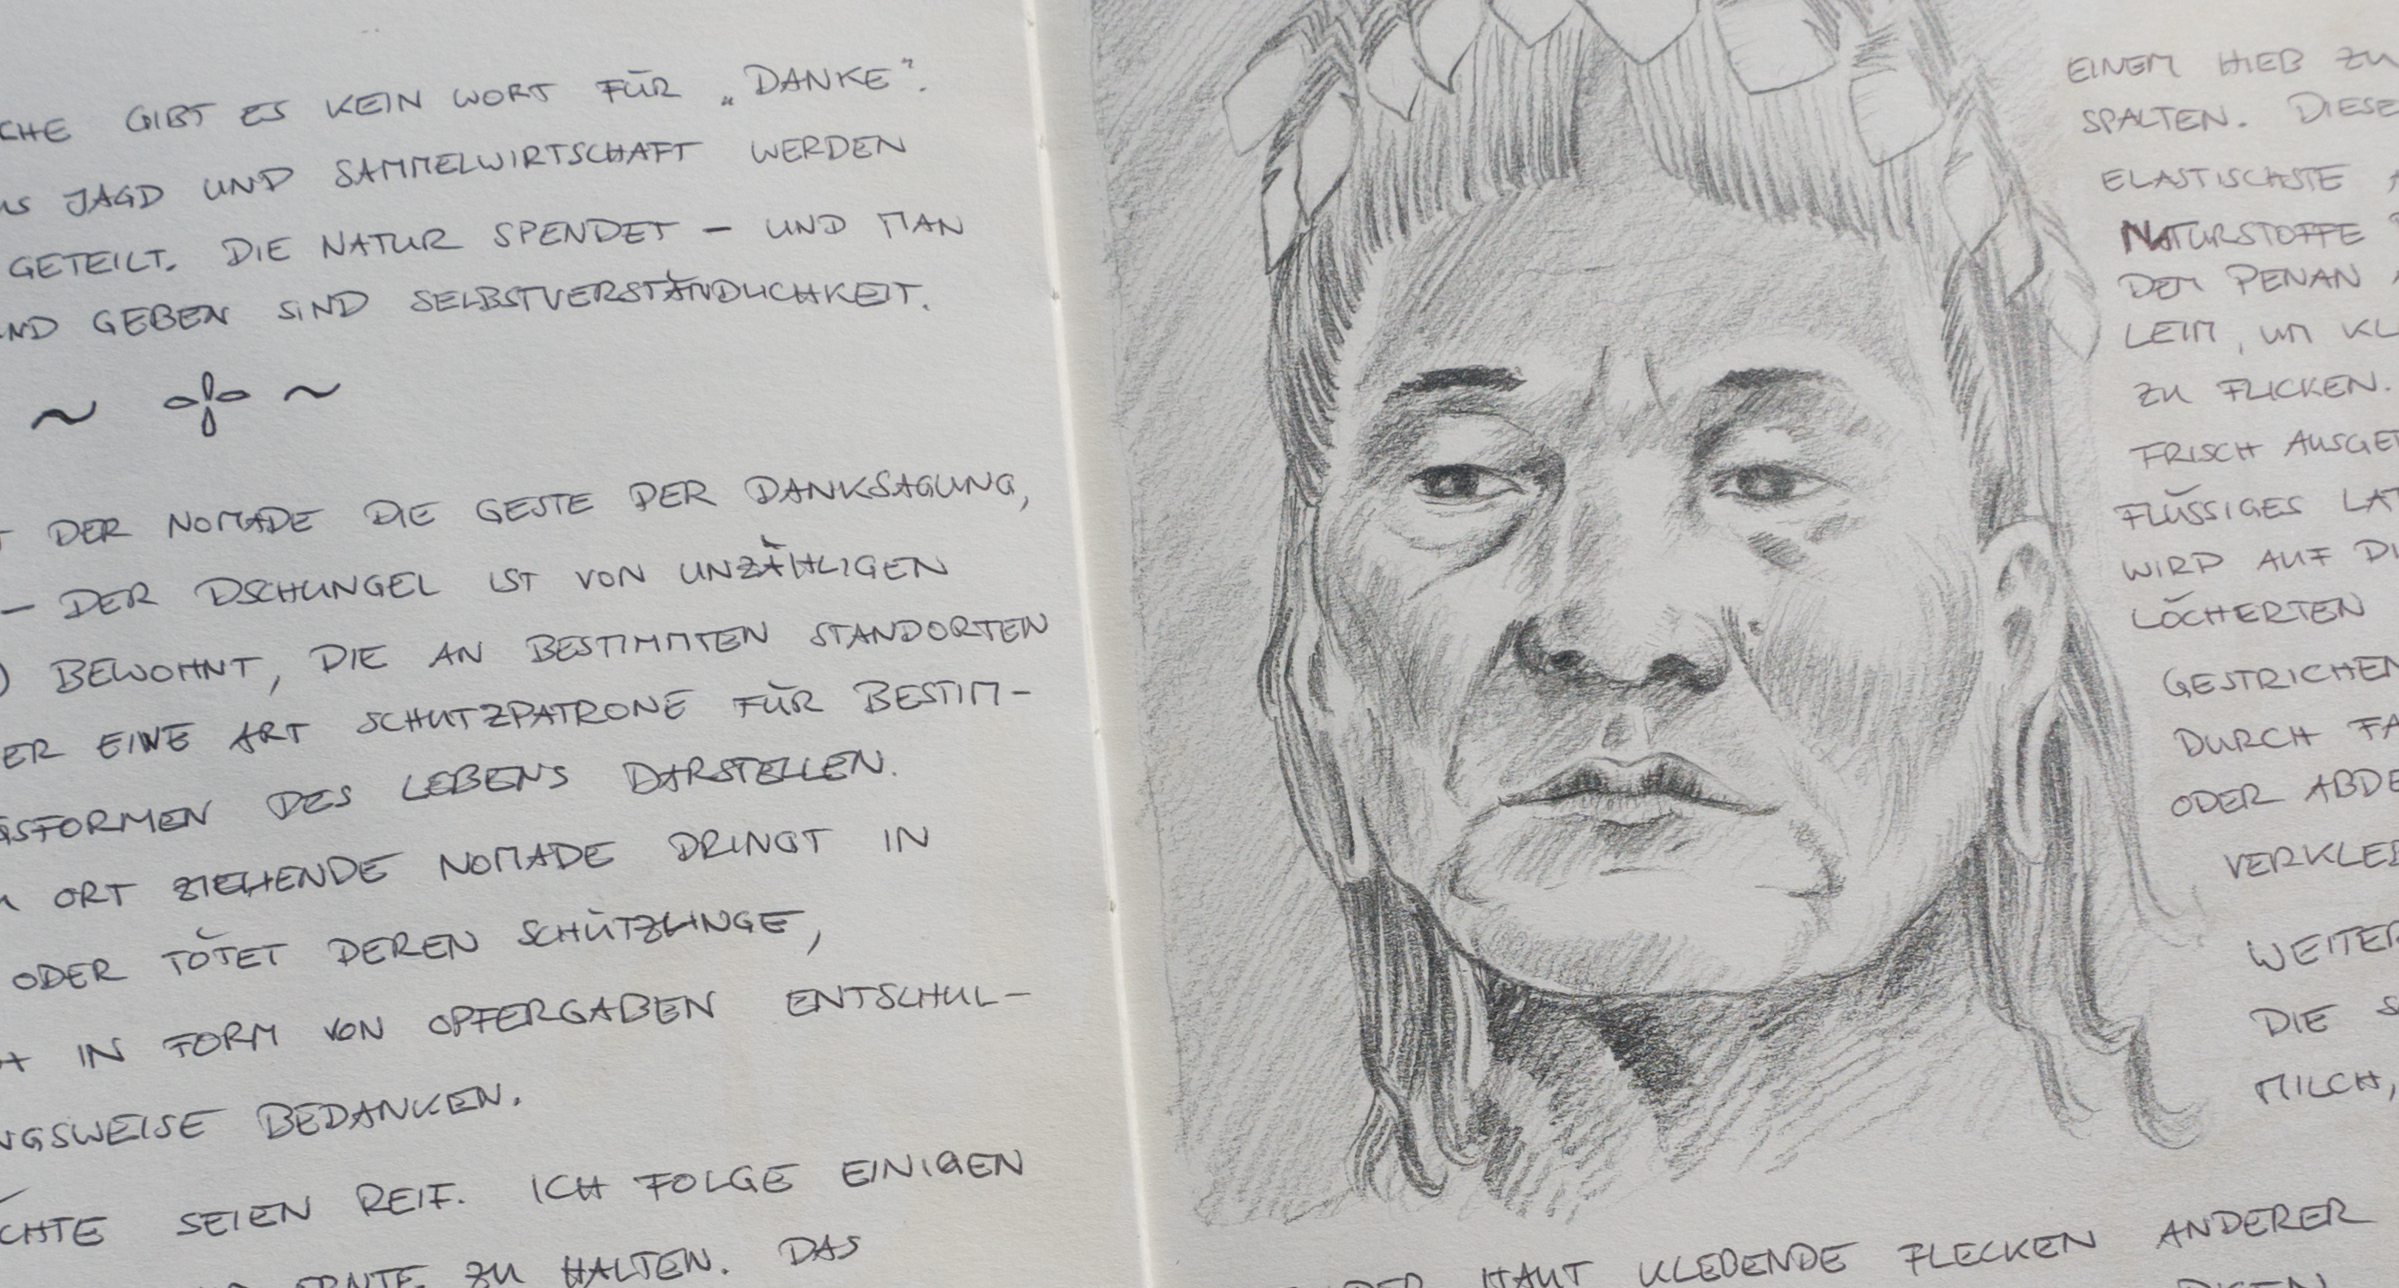 CHE GIBT ES KEIN WORT FÜR „DANKE".
JAGD UND SAMMELWIRTSCHAFT WERDEN
GETEILT. DIE NATUR SPENDET – UND MAN
ND GEBEN SIND SELBSTVERSTÄNDLICHKEIT.
DER NOMADE DIE GESTE DER DANKSAGUNG,
– DER DSCHUNGEL IST VON UNZÄHLIGEN
) BEWOHNT, DIE AN BESTIMMTEN STANDORTEN
ER EINE ART SCHUTZPATRONE FÜR BESTIM-
GSFORMEN DES LEBENS DARSTELLEN.
ORT ZIEHENDE NOMADE DRINGT IN
ODER TÖTET DEREN SCHÜTZLINGE,
IN FORM VON OPFERGABEN ENTSCHUL-
NGSWEISE BEDANKEN.
CHTE SEIEN REIF. ICH FOLGE EINIGEN
ZU HALTEN. DAS
EINEM HIEB ZU
SPALTEN. DIESE
ELASTISCHSTE
NATURSTOFFE
DEM PENAN
LEIM, UM KL
ZU FLICKEN.
FRISCH AUSGE
FLÜSSIGES LAT
WIRD AUF DI
LÖCHERTEN
GESTRICHEN
DURCH FA
ODER ABDE
VERKLEB
WEITER
DIE S
MILCH,
DER HAUT KLEBENDE FLECKEN ANDERER